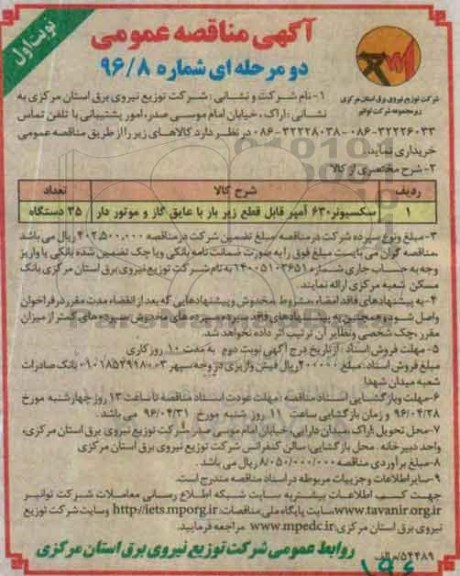 نوبت اول
آگهی مناقصه عمومی
دو مرحله ای شماره ۹۶/۸
شرکت توزیع نیروی برق استان مرکزی
زیرمجموعه شرکت توانیر
۱-نام شرکت و نشانی: شرکت توزیع نیروی برق استان مرکزی به
نشانی: اراک، خیابان امام موسی صدر، امور پشتیبانی با تلفن تماس
۰۸۶-۳۲۲۲۶۰۳۳-۰۸۶-۳۲۲۲۸۰۳۸ در نظر دارد کالاهای زیر را از طریق مناقصه عمومی
خریداری نماید.
۲-شرح مختصری از کالا
ردیف شرح کالا تعداد
۱ سکسیونر ۶۳۰ آمپر قابل قطع زیر بار با عایق گاز و موتور دار ۳۵ دستگاه
۳-مبلغ ونوع سپرده شرکت در مناقصه: مبلغ تضمین شرکت در مناقصه ۴۰۲,۵۰۰,۰۰۰ ریال می باشد
.مناقصه گران می بایست مبلغ فوق را به صورت ضمانت نامه بانکی ویا چک تضمین شده بانکی یا واریز
وجه به حساب جاری شماره ۱۴۰۰۵۱۰۳۶۵۱ به نام شرکت توزیع نیروی برق استان مرکزی بانک
مسکن شعبه مرکزی ارائه نمایند.
۴-به پیشنهادهای فاقد امضاء، مشروط، مخدوش وپیشنهادهایی که بعد از انقضاء مدت مقرر در فراخوان
واصل شود و همچنین به پیشنهادهای فاقد سپرده، سپرده های مخدوش، سپرده های کمتر از میزان
مقرر، چک شخصی ونظایر آن ترتیب اثر داده نخواهد شد.
۵- مهلت فروش اسناد: از تاریخ درج آگهی نوبت دوم به مدت ۱۰ روز کاری
مبلغ فروش اسناد: مبلغ ۲۰۰۰۰۰ ریال فیش واریزی در وجه سپهر ۰۱۰۱۸۵۲۹۹۸۰۰۳ بانک صادرات
شعبه میدان شهدا
۶-مهلت وبازگشایی اسناد مناقصه: مهلت عودت اسناد مناقصه تا ساعت ۱۳ روز چهارشنبه مورخ
۹۶/۰۴/۲۸ و زمان بازگشایی ساعت ۱۱ روز شنبه مورخ ۹۶/۰۴/۳۱ می باشد.
۷-محل تحویل: اراک، میدان دارایی، خیابان امام موسی صدر، شرکت توزیع نیروی برق استان مرکزی،
واحد دبیرخانه. محل بازگشایی: سالن کنفرانس شرکت توزیع نیروی برق استان مرکزی
۸-مبلغ برآوردی مناقصه ۸/۰۵۰/۰۰۰/۰۰۰ ریال می باشد.
۹-سایر اطلاعات و جزییات مربوطه در اسناد مناقصه مندرج است.
جهت کسب اطلاعات بیشتر به سایت شبکه اطلاع رسانی معاملات شرکت توانیر
www.tavanir.org.ir سایت پایگاه ملی مناقصات: http://iets.mporg.ir وسایت شرکت توزیع
نیروی برق استان مرکزی: www.mpedc.ir مراجعه فرمایید.
روابط عمومی شرکت توزیع نیروی برق استان مرکزی
۵۲۴۸۹/م الف